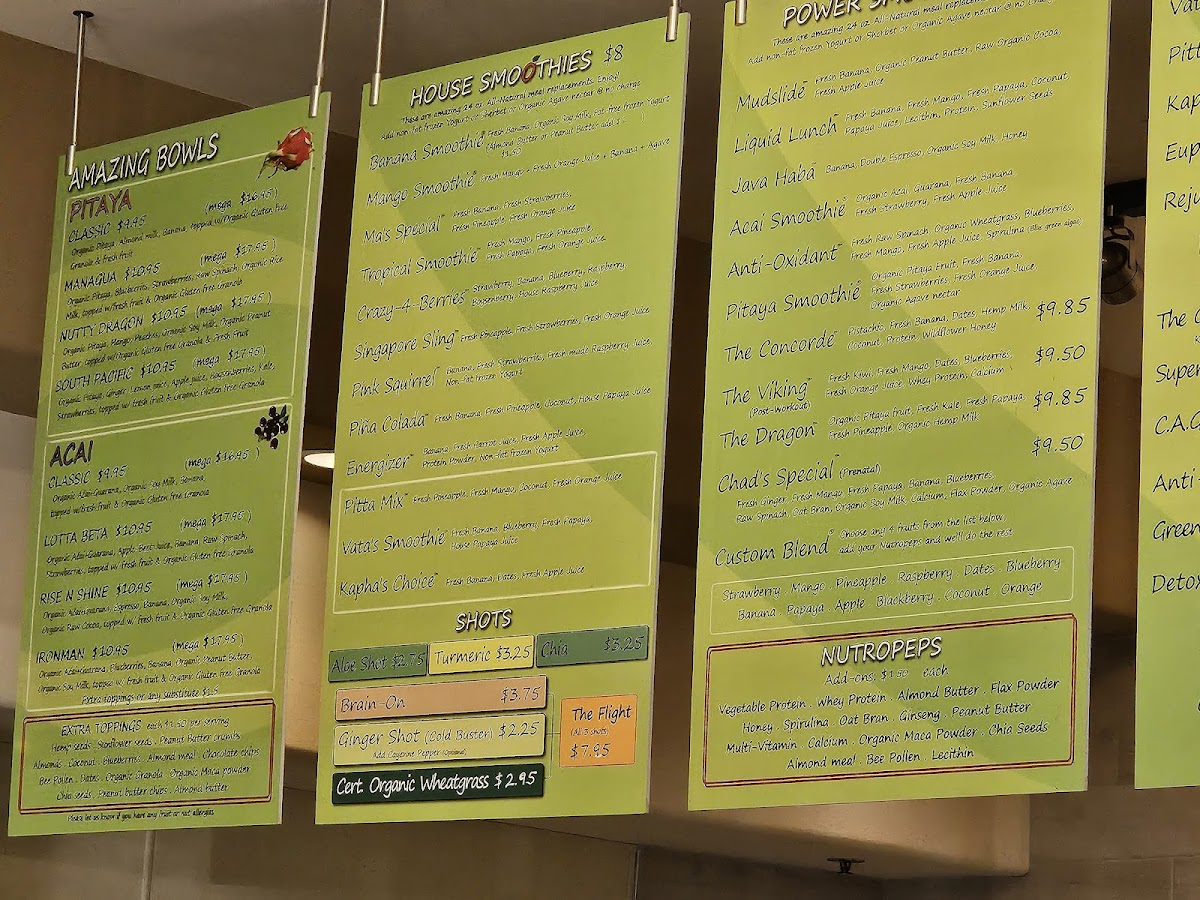 AMAZING BOWLS
PITAYA
CLASSIC $9.95 (mega $16.95)
Organic Pitaya, Almond milk, Banana, topped w/Organic Gluten Free
Granola & fresh fruit
MANAGUA $10.95 (mega $17.95)
Organic Pitaya, Blueberries, Strawberries, Raw Spinach, Organic Rice
Milk, topped w/fresh fruit & Organic Gluten free Granola
NUTTY DRAGON $10.95 (mega $17.95)
Organic Pitaya, Mango, Peaches, Organic Soy Milk, Organic Peanut
Butter, topped w/Organic Gluten free Granola & Fresh Fruit
SOUTH PACIFIC $10.95 (mega $17.95)
Organic Pitaya, Ginger, Lemon juice, Apple juice, Boysenberries, Kale,
Strawberries, topped w/ fresh fruit & Organic Gluten free Granola
ACAI
CLASSIC $9.95 (mega $16.95)
Organic Acai+Guarana, Organic Soy Milk, Banana,
topped w/fresh fruit & Organic Gluten free Granola
LOTTA BETA $10.95 (mega $17.95)
Organic Acai+Guarana, Apple Beet Juice, Banana, Raw Spinach,
Strawberries, topped w/ fresh fruit & Organic Gluten free Granola
RISE N SHINE $10.95 (mega $17.95)
Organic Acai+Guarana, Espresso, Banana, Organic Soy Milk,
Organic Raw Cocoa, topped w/ fresh fruit & Organic Gluten free Granola
IRONMAN $10.95 (mega $17.95)
Organic Acai+Guarana, Blueberries, Banana, Organic Peanut Butter,
Organic Soy Milk, topped w/ fresh fruit & Organic Gluten free Granola
Extra toppings or any substitute $1.5
EXTRA TOPPINGS each $1.50 per serving
Hemp seeds . Sunflower seeds . Peanut Butter crumbs
Almonds . Coconut . Blueberries . Almond meal . Chocolate chips
Bee Pollen . Dates . Organic Granola . Organic Maca powder
Chia seeds . Peanut butter chips . Almond butter
Please let us know if you have any fruit or nut allergies
HOUSE SMOOTHIES $8
These are amazing 24 oz. All-Natural meal replacements. Enjoy!
Add non fat frozen Yogurt or Sherbet or Organic Agave nectar @ no charge
Banana Smoothie Fresh Banana, Organic Soy Milk, Fat free frozen Yogurt
(Almond Butter or Peanut Butter add
$1.50
Mango Smoothie Fresh Mango + Fresh Orange Juice + Banana + Agave
Ma's Special Fresh Banana, Fresh Strawberries,
Fresh Pineapple, Fresh Orange Juice
Tropical Smoothie Fresh Mango, Fresh Pineapple,
Fresh Papaya, Fresh Orange Juice
Crazy-4-Berries Strawberry, Banana, Blueberry, Raspberry,
Boysenberry, House Raspberry Juice
Singapore Sling Fresh Pineapple, Fresh Strawberries, Fresh Orange Juice
Pink Squirrel Banana, Fresh Strawberries, Fresh made Raspberry Juice,
Non-fat frozen Yogurt
Piña Colada Fresh Banana, Fresh Pineapple, Coconut, House Papaya Juice
Energizer Banana, Fresh Carrot Juice, Fresh Apple Juice,
Protein Powder, Non-fat frozen Yogurt
Pitta Mix Fresh Pineapple, Fresh Mango, Coconut, Fresh Orange Juice
Vata's Smoothie Fresh Banana, Blueberry, Fresh Papaya,
House Papaya Juice
Kapha's Choice Fresh Banana, Dates, Fresh Apple Juice
SHOTS
Aloe Shot $2.75 Turmeric $3.25 Chia $3.25
Brain-On $3.75
Ginger Shot (Cold Buster) $2.25
Add Cayenne Pepper (Optional)
Cert. Organic Wheatgrass $2.95
The Flight
(All 3 shots)
$7.95
POWER SMO
These are amazing 24 oz. All-Natural meal replacem
Add non-fat frozen Yogurt or Sherbet or Organic Agave nectar @ no charge
Mudslide Fresh Banana, Organic Peanut Butter, Raw Organic Cocoa,
Fresh Apple Juice
Liquid Lunch Fresh Banana, Fresh Mango, Fresh Papaya, Coconut
Papaya Juice, Lecithin, Protein, Sunflower Seeds
Java Haba Banana, Double Espresso, Organic Soy Milk, Honey
Acai Smoothie Organic Acai, Guarana, Fresh Banana,
Fresh Strawberry, Fresh Apple Juice
Anti-Oxidant Fresh Raw Spinach, Organic Wheatgrass, Blueberries,
Fresh Mango, Fresh Apple Juice, Spirulina (Blue green algae)
Pitaya Smoothie Organic Pitaya Fruit, Fresh Banana,
Fresh Strawberries, Fresh Orange Juice,
Organic Agave nectar
The Concorde Pistachio, Fresh Banana, Dates, Hemp Milk, $9.85
Coconut, Protein, Wildflower Honey
The Viking Fresh Kiwi, Fresh Mango, Dates, Blueberries, $9.50
(Post-Workout) Fresh Orange Juice, Whey Protein, Calcium
The Dragon Organic Pitaya fruit, Fresh Kale, Fresh Papaya, $9.85
Fresh Pineapple, Organic Hemp Milk
Chad's Special (Prenatal) $9.50
Fresh Ginger, Fresh Mango, Fresh Papaya, Banana, Blueberries,
Raw Spinach, Oat Bran, Organic Soy Milk, Calcium, Flax Powder, Organic Agave
Custom Blend Choose any 4 fruits from the list below,
add your Nutropeps and we'll do the rest
Strawberry . Mango . Pineapple . Raspberry . Dates . Blueberry
Banana . Papaya . Apple . Blackberry . Coconut . Orange
NUTROPEPS
Add-ons, $1.50 each
Vegetable Protein . Whey Protein . Almond Butter . Flax Powder
Honey . Spirulina . Oat Bran . Ginseng . Peanut Butter
Multi-Vitamin . Calcium . Organic Maca Powder . Chia Seeds
Almond meal . Bee Pollen . Lecithin
Vat
Pitt
Kap
Eup
Reju
The C
Super
C.A.
Anti-
Green
Detox